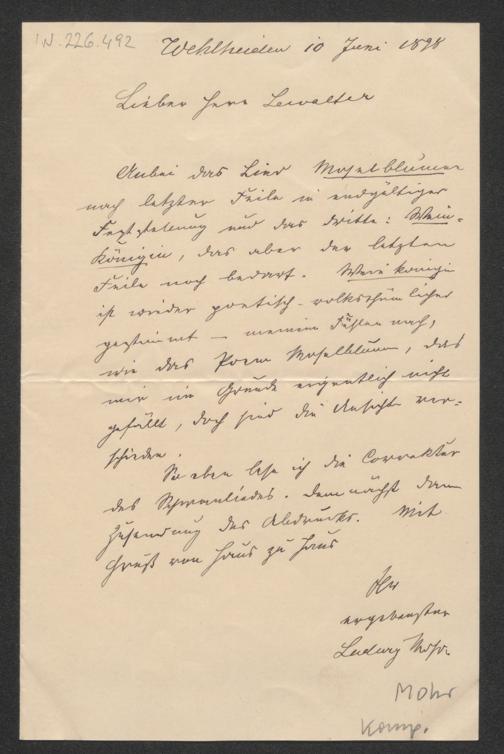 IN. 226.492
Wehlheiden 10 Juni 1898
Lieber Herr Lewalter
Anbei das Lied Moselblümen
nach letzter Feile in endgültiger
Feststelung und das dritte: Wein-
königin, das aber der letzten
Feile noch bedarf. Weinkönigin
ist wieder poetisch-volksthümlicher
gestimmt – meinem Fühlen nach,
wie das Poem Moselblum, das
mir im Grunde eigentlich nicht
gefällt, doch sind die Ansichten ver-
schieden.
So eben lese ich die Correktur
des Schwanliedes. Demnächst dann
Zusendung des Abdrucks. Mit
Gruß von Haus zu Haus
Ihr
ergebenster
Ludwig Mohr.
Mohr
Komp.